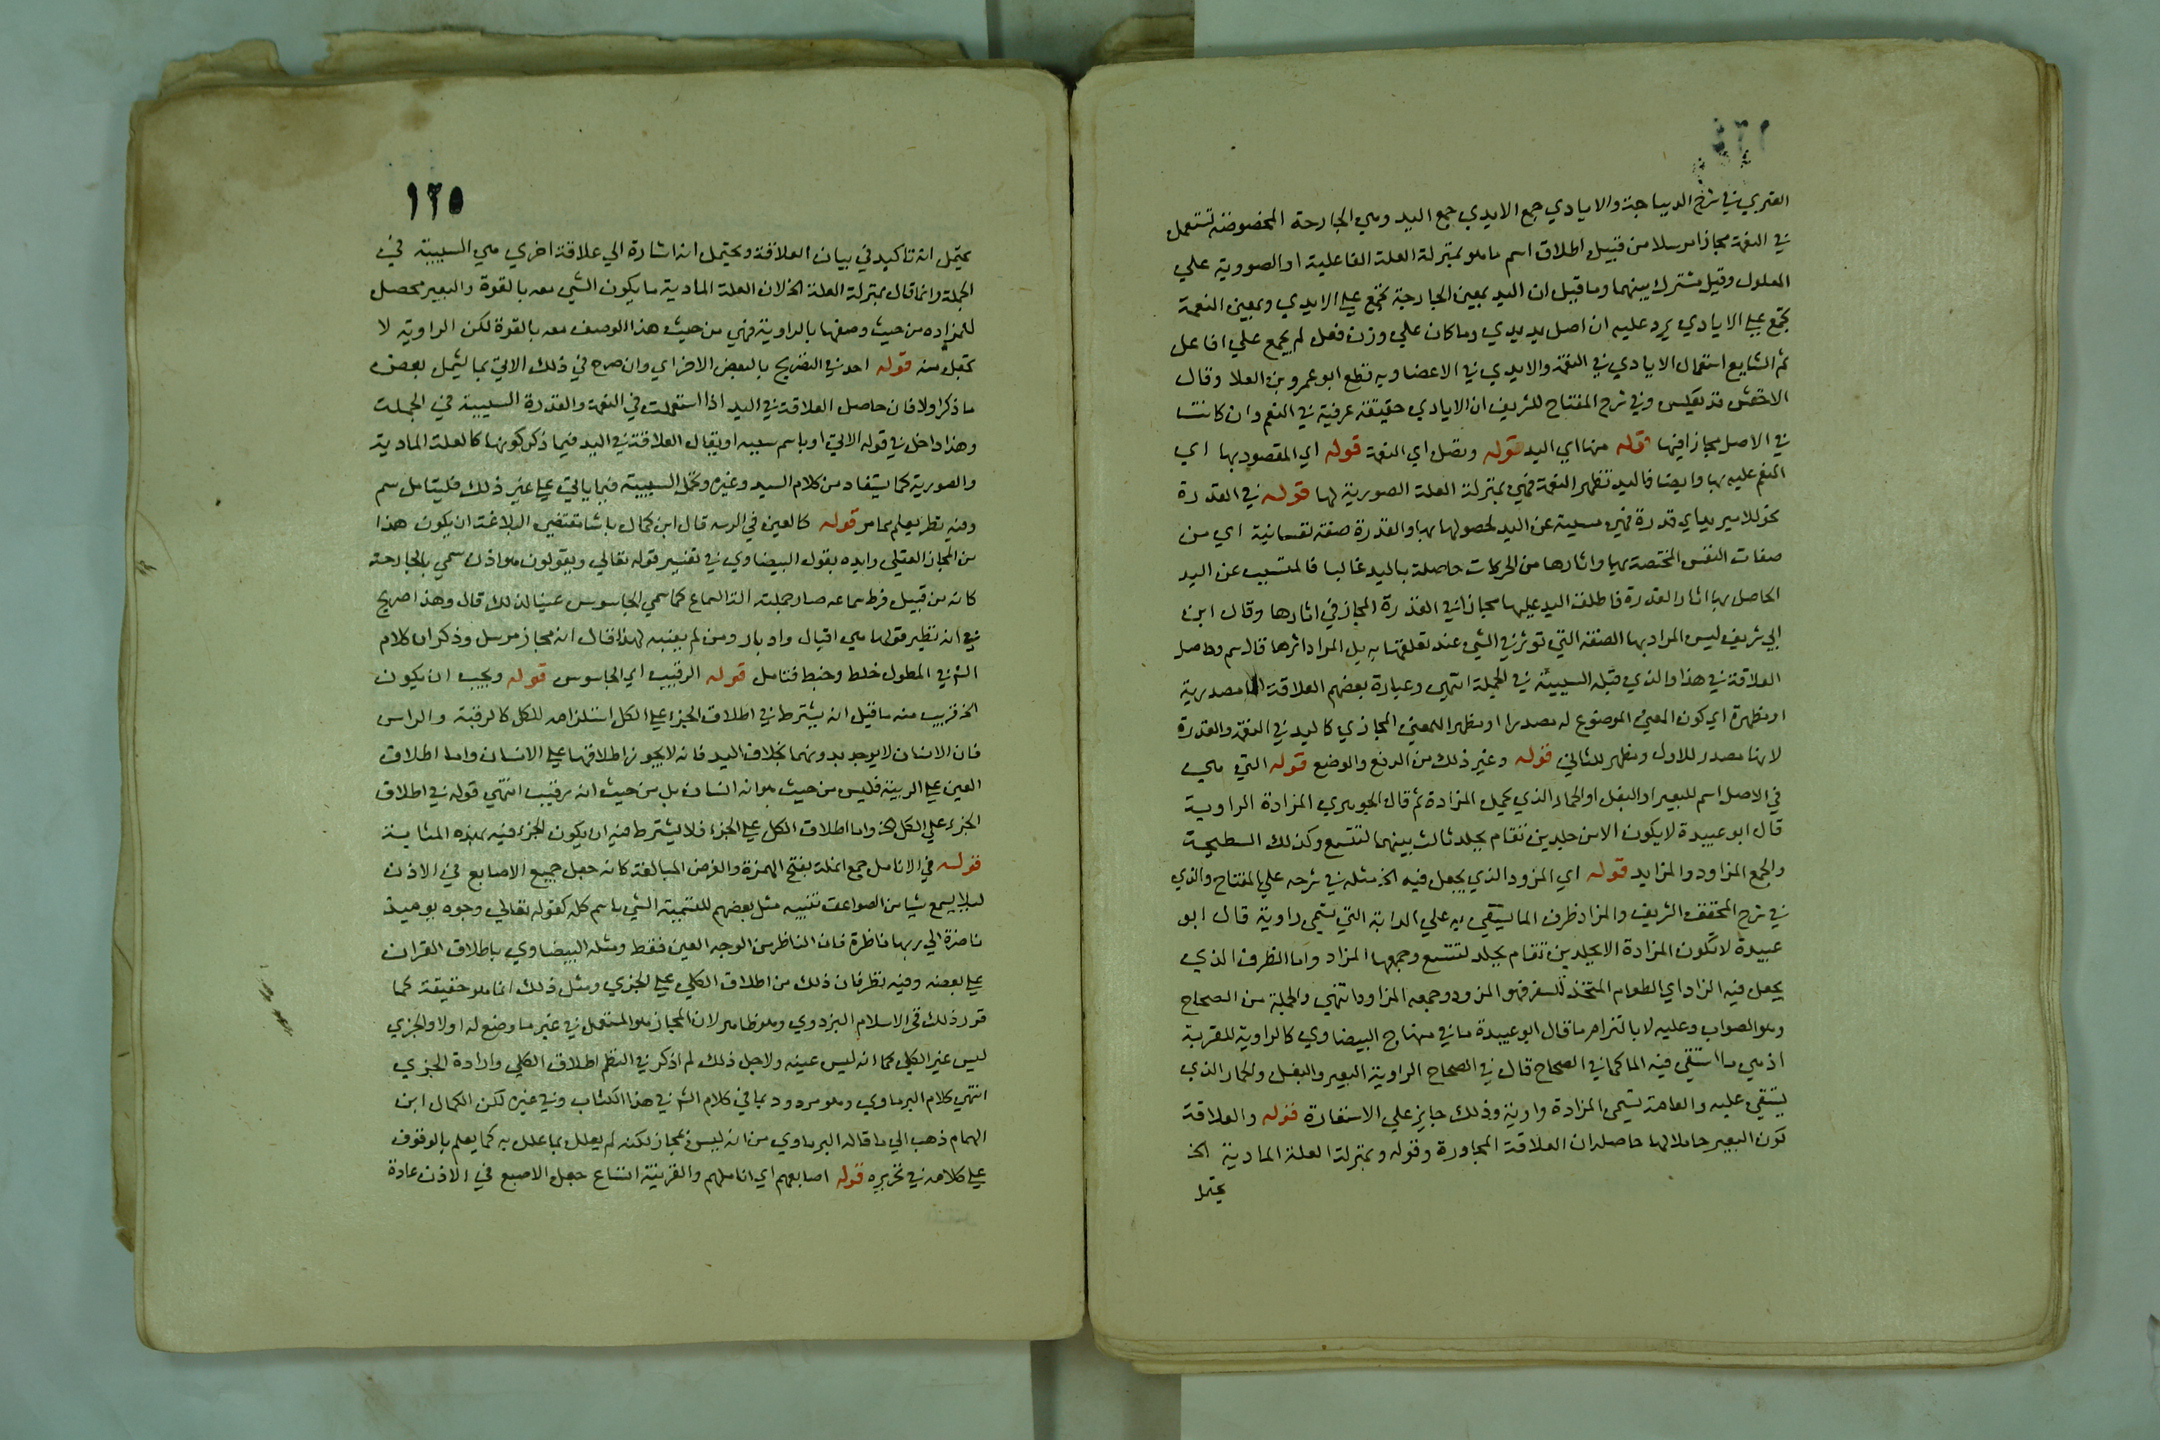 الفنري في شرح الديباجة والايادي جمع الايدي جمع اليد وهي الجارحة المخصوصة تستعمل
في النعمة مجازا مرسلا من قبيل اطلاق اسم ما هو بمنزلة العلة الفاعلية او الصورية علي
المعلول وقيل مشترك بينهما وما قيل ان اليد بمعني الجارحة تجمع علي الايدي وبمعني النعمة
تجمع علي الايادي يرد عليه ان اصل يد يدي وما كان علي وزن فعل لم يجمع علي افاعل
ثم الشايع استعمال الايادي في النعمة والايدي في الاعضا وبه قطع ابو عمرو بن العلا وقال
الاخفش قد يعكس وفي شرح المفتاح للشريف ان الايادي حقيقة عرفية في النعم وان كانت
في الاصل مجازا فيها قوله منها اي اليد قوله وتصل اي النعمة قوله اي المقصود بها اي
المنعم عليه بها وايضا فاليد تظهر النعمة فهي بمنزلة العلة الصورية لها قوله في القدرة
نحو للامير يد اي قدرة فهي مسببة عن اليد لحصولها بها والقدرة صفة نفسانية اي من
صفات النفس المختصة بها واثارها من الحركات حاصلة باليد غالبا فالمتسبب عن اليد
الحاصل بها اثار القدرة فاطلاق اليد عليها مجاز اي القدرة المجاز في اثارها وقال ابن
ابي شريف ليس المراد بها الصفة التي توثر في الشي عند تعلقها به بل المراد اثرها قال سم وحاصل
العلاقة في هذا والذي قبله السببية في الجملة انتهي وعبارة بعضهم العلاقة مصدرية
او مظهرة اي كون المعني الموضوع له مصدرا او مظهرا للمعني المجازي كاليد في النعمة والقدرة
لانها مصدر للاول ومظهر للثاني قوله وغير ذلك من الدفع والوضع قوله التي هي
في الاصل اسم للبعير او البغل او الحمار الذي يحمل المزادة ثم قال الجوهري المزادة الراوية
قال ابو عبيدة لا يكون الا من جلدين تفام بجلد ثالث بينهما لتتسع وكذلك السطيحة
والجمع المزاود والمزايد قوله اي المزود الذي يجعل فيه الخ مثله في شرحه علي المفتاح والذي
في شرح المحقق الشريف والمزاد ظرف الما يستقي به علي الدابة التي تسمي راوية قال ابو
عبيدة لا تكون المزادة الا بجلدين تفام بجلد لتتسع وجمعها المزاد واما الظرف الذي
يجعل فيه الزاد اي الطعام المتخذ للسفر فهو المزود وجمعه المزاود انتهي والجملة من الصحاح
وهو الصواب وعليه لا بالتزام ما قال ابو عبيدة ما في منهاج البيضاوي كالراوية للقربة
اذ هي ما استقي فيه الما كما في الصحاح قال في الصحاح الراوية البعير والبغل والحمار الذي
يستقي عليه والعامة تسمي المزادة راوية وذلك جايز علي الاستعارة قوله والعلاقة
كون البعير حاملا لها حاصله ان العلاقة المجاورة وقوله وبمنزلة العلة المادية الخ
يحتمل
١٢٥
يحتمل انه تاكيد في بيان العلاقة ويحتمل انه اشارة الي علاقة اخري هي السببية في
الجملة وانما قال بمنزلة العلة الخ لان العلة المادية ما يكون الشي معه بالقوة والبعير محصل
للمزاده من حيث وصفها بالراوية فهي من حيث هذا الوصف معه بالقوة لكن الراوية لا
تجعل منه قوله احد في التصريح بالبعض الافراي وان صرح في ذلك الاتي بما يشمل بعض
ما ذكر اولا فان حاصل العلاقة في اليد اذا استعملت في النعمة والقدرة السببية في الجملة
وهذا داخل في قوله الاتي او باسم سببه او يقال العلاقة في اليد فيما ذكر كونها كالعلة المادية
والصورية كما يستفاد من كلام السيد وغيره وتحمل السببية فيما ياتي علي غير ذلك فليتامل سم
وفيه نظر يعلم مما مر قوله كالعين في الربيه قال ابن كمال باشا تقتضي البلاغة ان يكون هذا
من المجاز العقلي وايده بقول البيضاوي في تفسير قوله تعالي ويقولون هو اذن سمي بالجارحة
كانه من قبيل فرط سماعه صار جملته الة السماع كما سمي الجاسوس عينا لذلك قال وهذا صريح
في انه نظير قولها هي اقبال وادبار ومن لم يتنبه لهذا قال انه مجاز مرسل وذكر ان كلام
الش في المطول خلط وخبط فتامل قوله الرقيب اي الجاسوس قوله ويجب ان يكون
الخ قريب منه ما قيل انه يشترط في اطلاق الجزء علي الكل استلزامه للكل كالرقبة والراس
فان الانسان لا يوجد بدونهما بخلاف اليد فانه لا يجوز اطلاقها علي الانسان واما اطلاق
العين علي الربيئة فليس من حيث هو انه انسان بل من حيث انه رقيب انتهي قوله في اطلاق
الجزء علي الكل الخ واما اطلاق الكل علي الجزء فلا يشترط فيه ان يكون للجزء فيه بهذه المثابة
قوله في الانامل جمع انملة بفتح الهمزة والغرض المبالغة كانه جعل جميع الاصابع في الاذن
ليلا يسمع شيا من الصواعق تنبيه مثل بعضهم للتسمية الشي باسم كله كقوله تعالي وجوه يوميذ
ناضرة الي ربها ناظرة فان الناظر من الوجه العين فقط ومثله البيضاوي باطلاق القران
علي بعضه وفيه نظر فان ذلك من اطلاق الكلي علي الجزي ومثل ذلك انما هو حقيقة كما
قرر ذلك فخر الاسلام البزدوي وهو ظاهر لان المجاز هو المستعمل في غير ما وضع له اولا والجزي
ليس غير الكلي كما انه ليس عينه ولاجل ذلك لم اذكر في النظم اطلاق الكلي وارادة الجزي
انتهي كلام البرماوي وهو مردود بما في كلام الش في هذا الكتاب وفي غيره لكن الكمال ابن
الهمام ذهب الي ما قاله البرماوي من انه ليس بمجاز لكنه لم يعلل بما علل به كما يعلم بالوقوف
علي كلامه في تحريره قوله اصابعهم اي اناملهم والقرينة امتناع جعل الاصبع في الاذن عادة